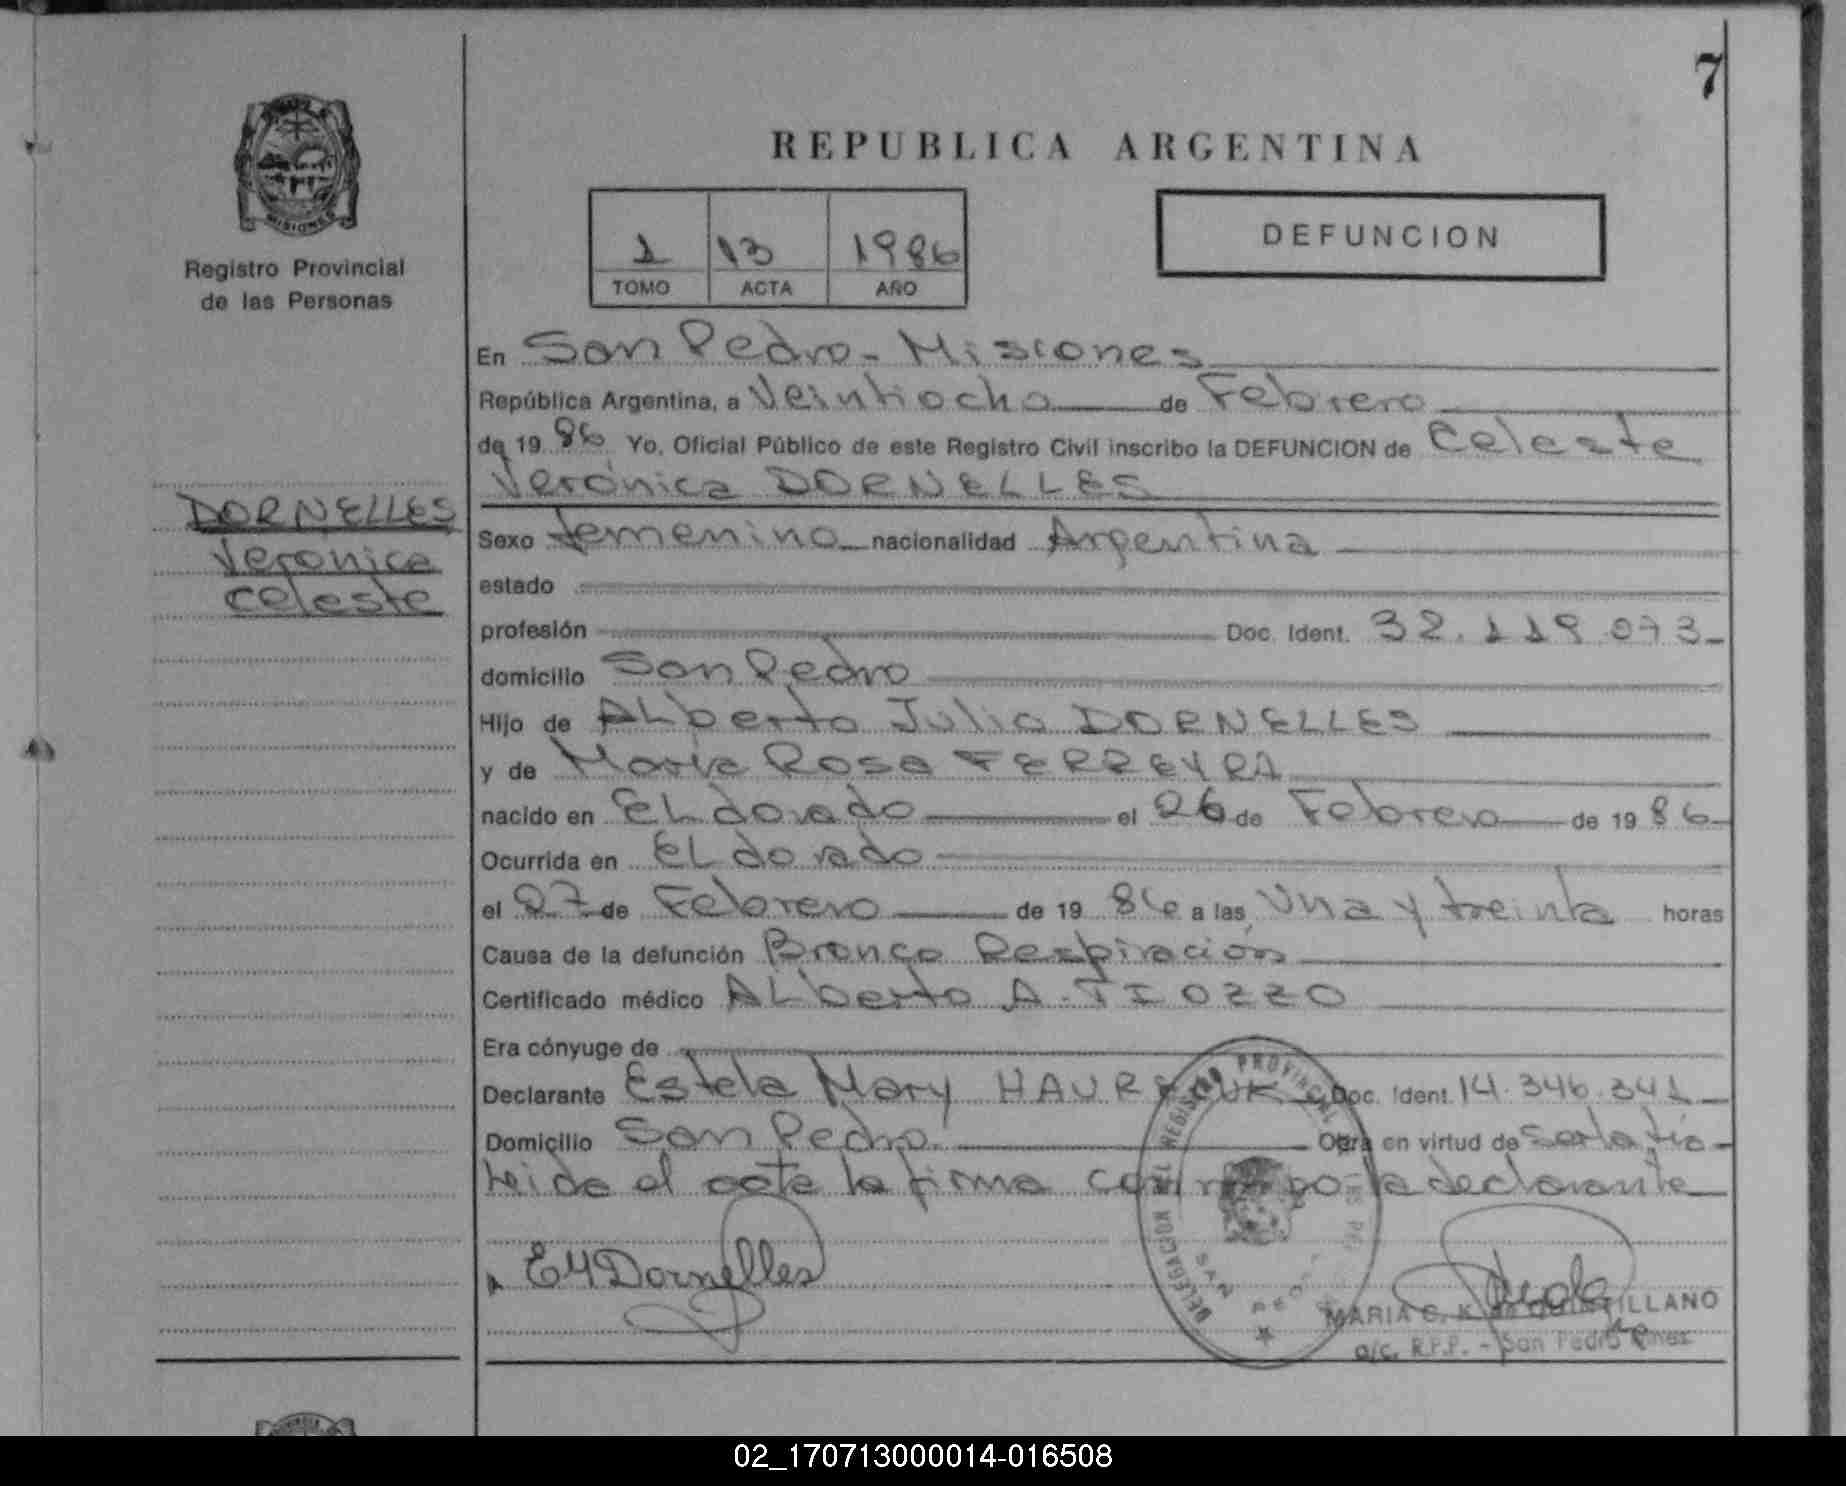 7
MISIONES
Registro Provincial
de las Personas
REPUBLICA ARGENTINA
1 13 1986
TOMO ACTA AÑO
DEFUNCION
En San Pedro - Misiones
República Argentina, a Veintiocho de Febrero
de 19 86 Yo, Oficial Público de este Registro Civil inscribo la DEFUNCION de Celeste
Verónica DORNELLES
DORNELLES
Veronica
Celeste
Sexo femenino nacionalidad Argentina
estado
profesión Doc. Ident. 32.119.073-
domicilio San Pedro
Hijo de ALberto Julio DORNELLES
y de María Rosa FERREYRA
nacido en ELdorado el 26 de Febrero de 19 86
Ocurrida en ELdorado
el 27 de Febrero de 19 86 a las Una y treinta horas
Causa de la defunción Bronco Respiración
Certificado médico ALberto A. TIOZZO
Era cónyuge de
Declarante Estela Mary Doc. Ident. 14.346.341
Domicilio San Pedro. Obra en virtud de ser la tía
Leida el acta la firma la declarante
EMDornelles
DELEGACION DEL REGISTRO PROVINCIAL
SAN PEDRO
MARIA C. K. de QUINTILLANO
a/c. R.P.P. - San Pedro
02_170713000014-016508